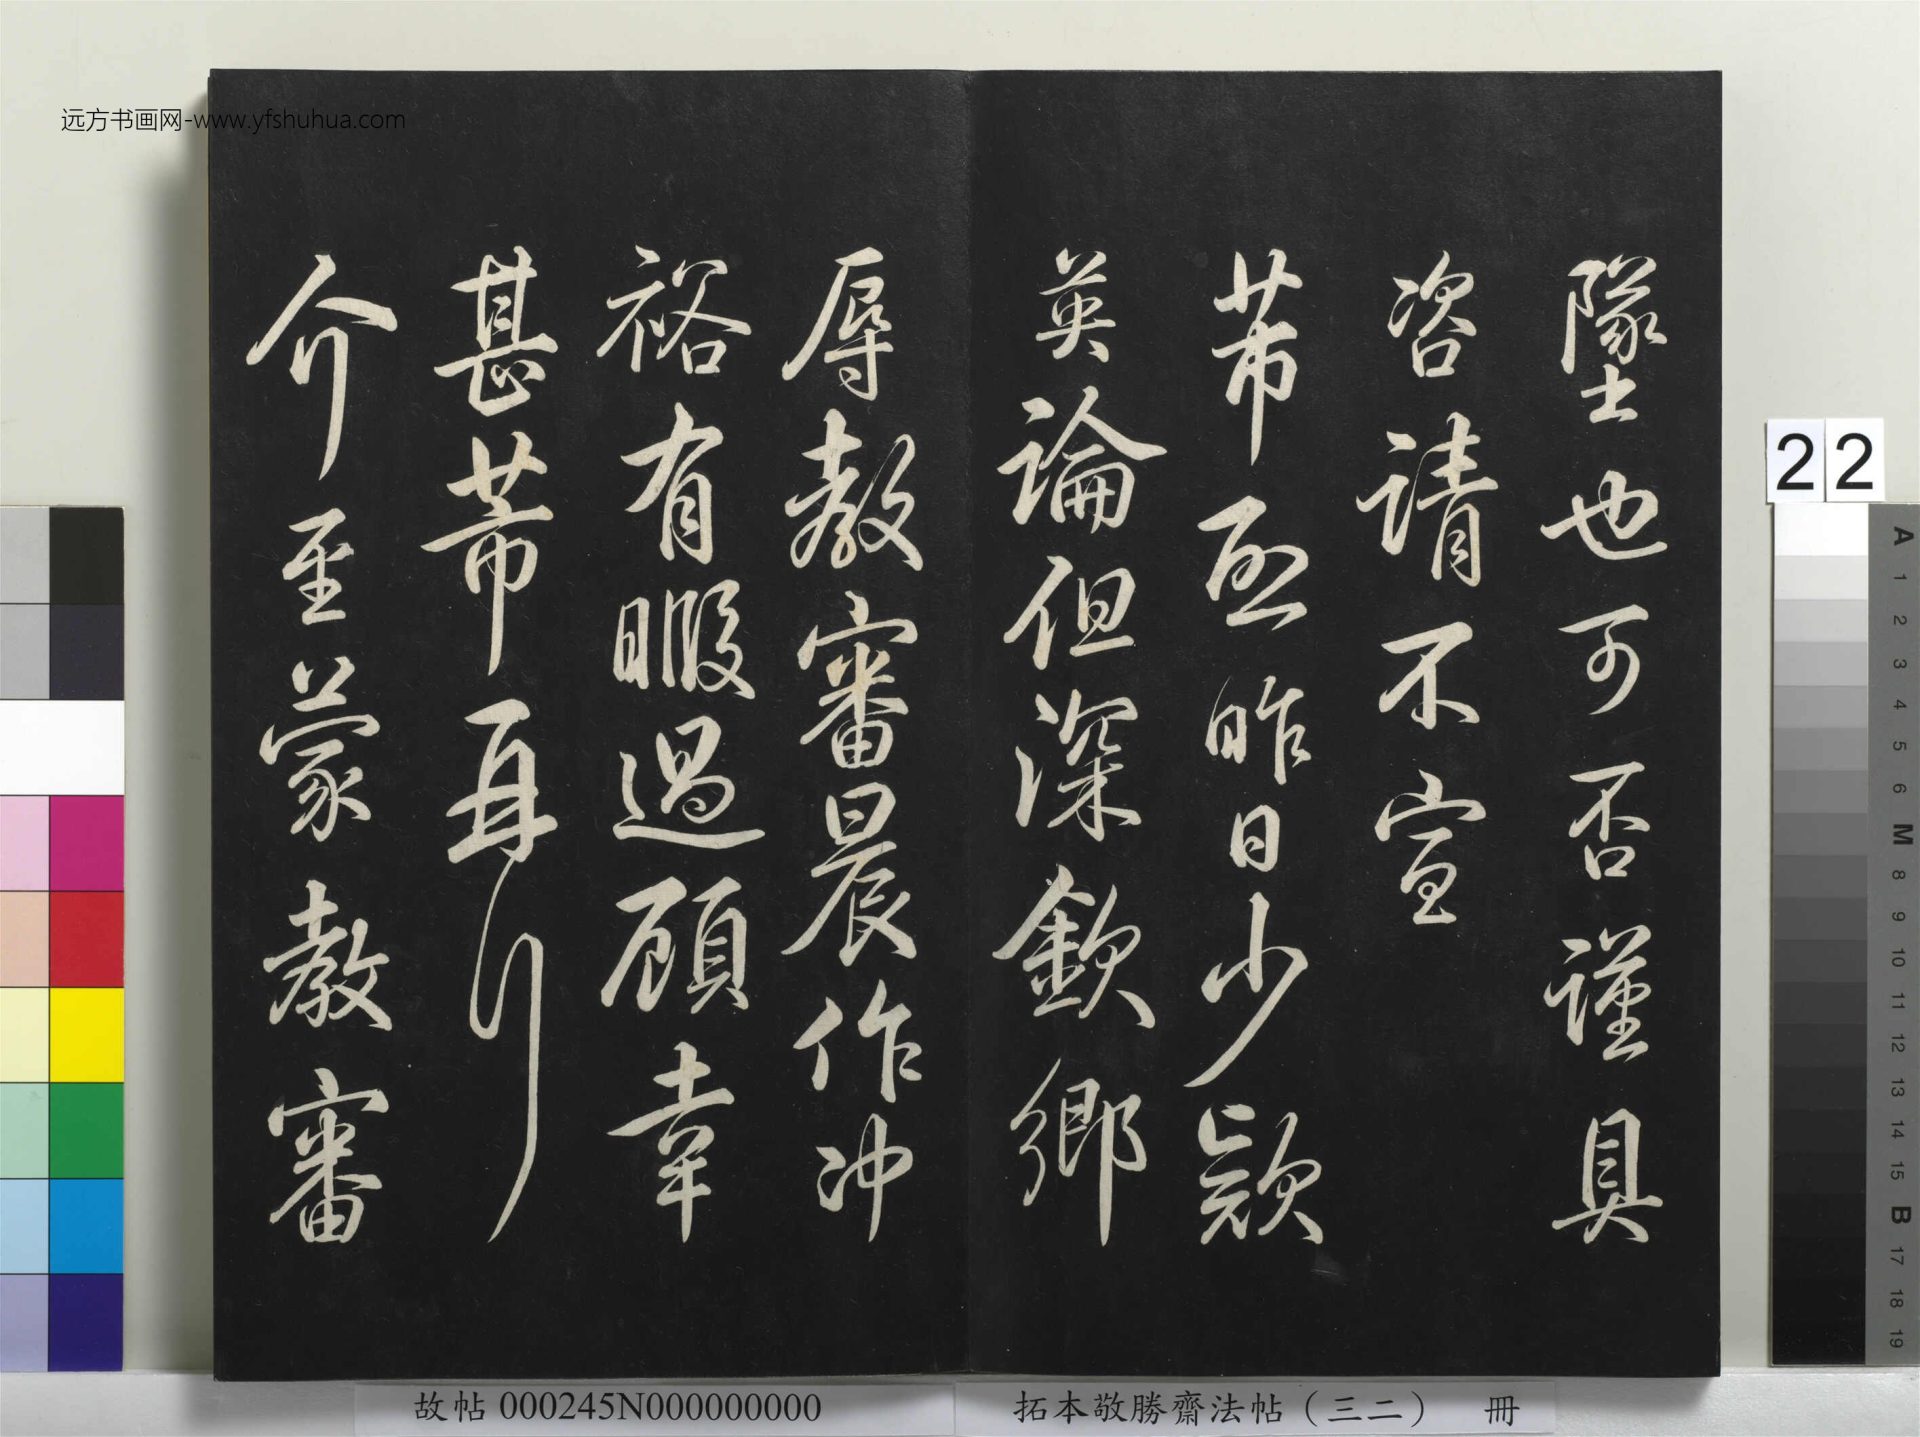 墜也可否謹具
咨請不宣
芾啓昨日少款
英論但深欽鄉
辱教審晨作冲
裕有暇過顧幸
甚芾耳
介至蒙教審
远方书画网-www.yfshuhua.com
22
故帖 000245N000000000
拓本敬勝齋法帖（三二） 冊
A 1 2 3 4 5 6 M 8 9 10 11 12 13 14 15 B 17 18 19